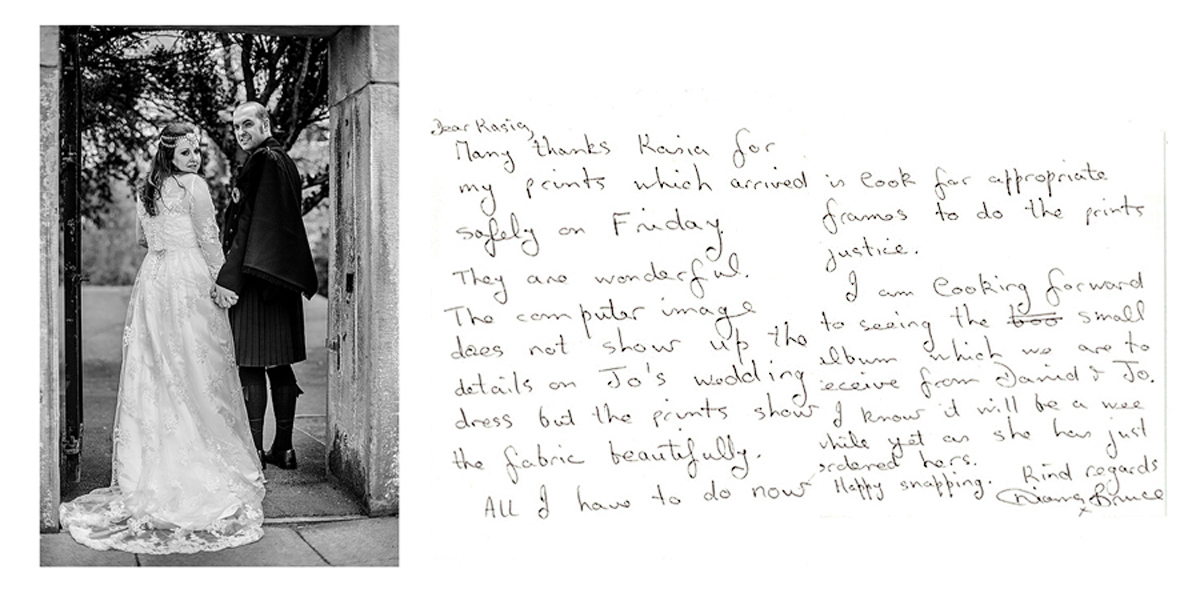 Dear Kasia,
Many thanks Kasia for
my prints which arrived
safely on Friday.
They are wonderful.
The computer image
does not show up the
details on Jo's wedding
dress but the prints show
the fabric beautifully.
All I have to do now
is look for appropriate
frames to do the prints
justice.
I am looking forward
to seeing the small
album which we are to
receive from David & Jo.
I know it will be a wee
while yet as she has just
ordered hers.
Happy snapping. Kind regards
Diana Bruce
x